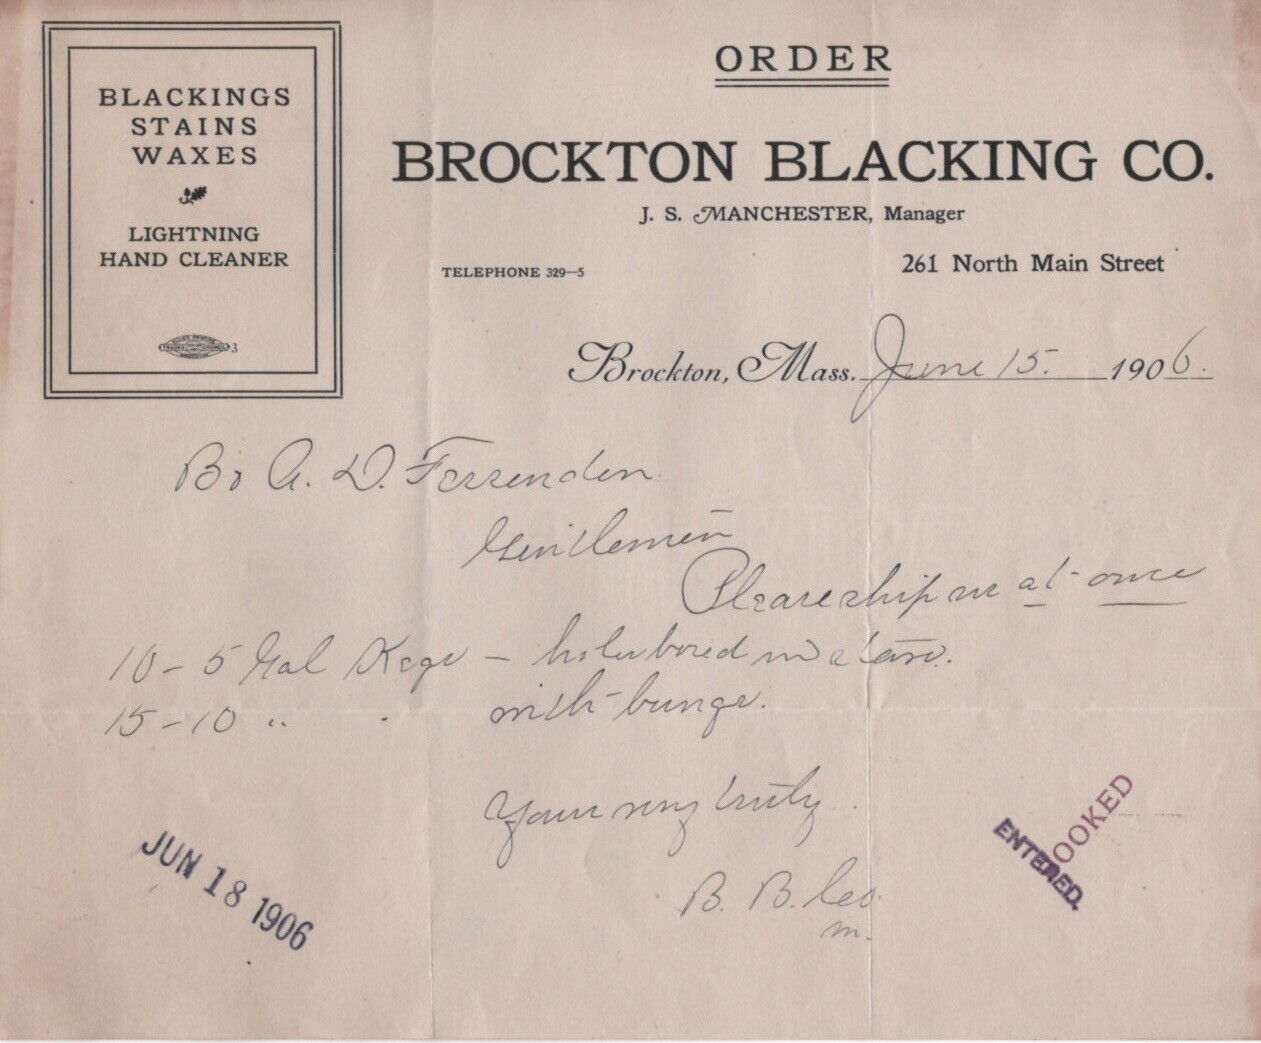 BLACKINGS
STAINS
WAXES
LIGHTNING
HAND CLEANER
3
ORDER
BROCKTON BLACKING CO.
J. S. MANCHESTER, Manager
TELEPHONE 329-5
261 North Main Street
Brockton, Mass. June 15. 1906.
A. D.
Gentlemen
Please ship us at once
10 - 5 Gal Kegs - holes bored in stave.
15 - 10 " " with bungs.
Yours very truly
B. B. Co.
M.
JUN 18 1906
BOOKED
ENTERED.